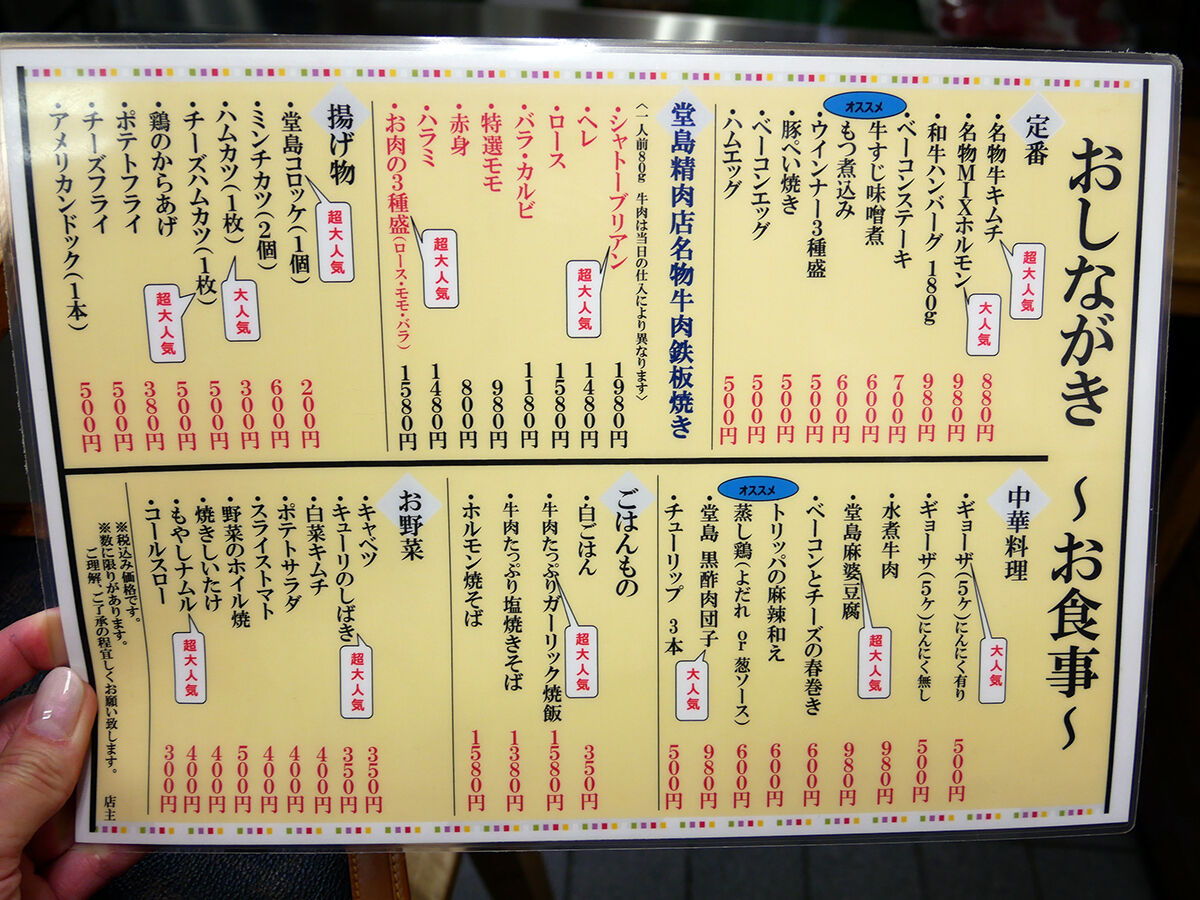 おしながき ～お食事～
定番
・名物牛キムチ 880円
超大人気
・名物MIXホルモン 980円
大人気
・和牛ハンバーグ 180g 980円
・ベーコンステーキ 700円
オススメ
牛すじ味噌煮 600円
もつ煮込み 600円
・ウインナー3種盛 500円
・豚ぺい焼き 500円
・ベーコンエッグ 500円
・ハムエッグ 500円
堂島精肉店名物牛肉鉄板焼き
〈一人前80g 牛肉は当日の仕入により異なります〉
・シャトーブリアン 1980円
超大人気
・ヘレ 1480円
・ロース 1580円
・バラ・カルビ 1180円
・特選モモ 980円
・赤身 800円
・ハラミ 1480円
・お肉の3種盛(ロース・モモ・バラ) 1580円
超大人気
揚げ物
・堂島コロッケ(1個) 200円
超大人気
・ミンチカツ(2個) 600円
・ハムカツ(1枚) 300円
大人気
・チーズハムカツ(1枚) 500円
超大人気
・鶏のからあげ 500円
・ポテトフライ 380円
・チーズフライ 500円
・アメリカンドック(1本) 500円
中華料理
・ギョーザ(5ケ)にんにく有り 500円
大人気
・ギョーザ(5ケ)にんにく無し 500円
・水煮牛肉 980円
・堂島麻婆豆腐 980円
超大人気
・ベーコンとチーズの春巻き 600円
・トリッパの麻辣和え 600円
オススメ
蒸し鶏(よだれ or 葱ソース) 600円
・堂島 黒酢肉団子 980円
大人気
・チューリップ 3本 500円
ごはんもの
・白ごはん 350円
・牛肉たっぷりガーリック焼飯 1580円
超大人気
・牛肉たっぷり塩焼きそば 1380円
・ホルモン焼そば 1580円
お野菜
・キャベツ 350円
・キューリのしばき 350円
超大人気
・白菜キムチ 400円
・ポテトサラダ 400円
・スライストマト 400円
・野菜のホイル焼 500円
・焼きしいたけ 400円
・もやしナムル 400円
超大人気
・コールスロー 300円
※税込み価格です。
※数に限りがあります。
ご理解、ご了承の程宜しくお願い致します。 店主